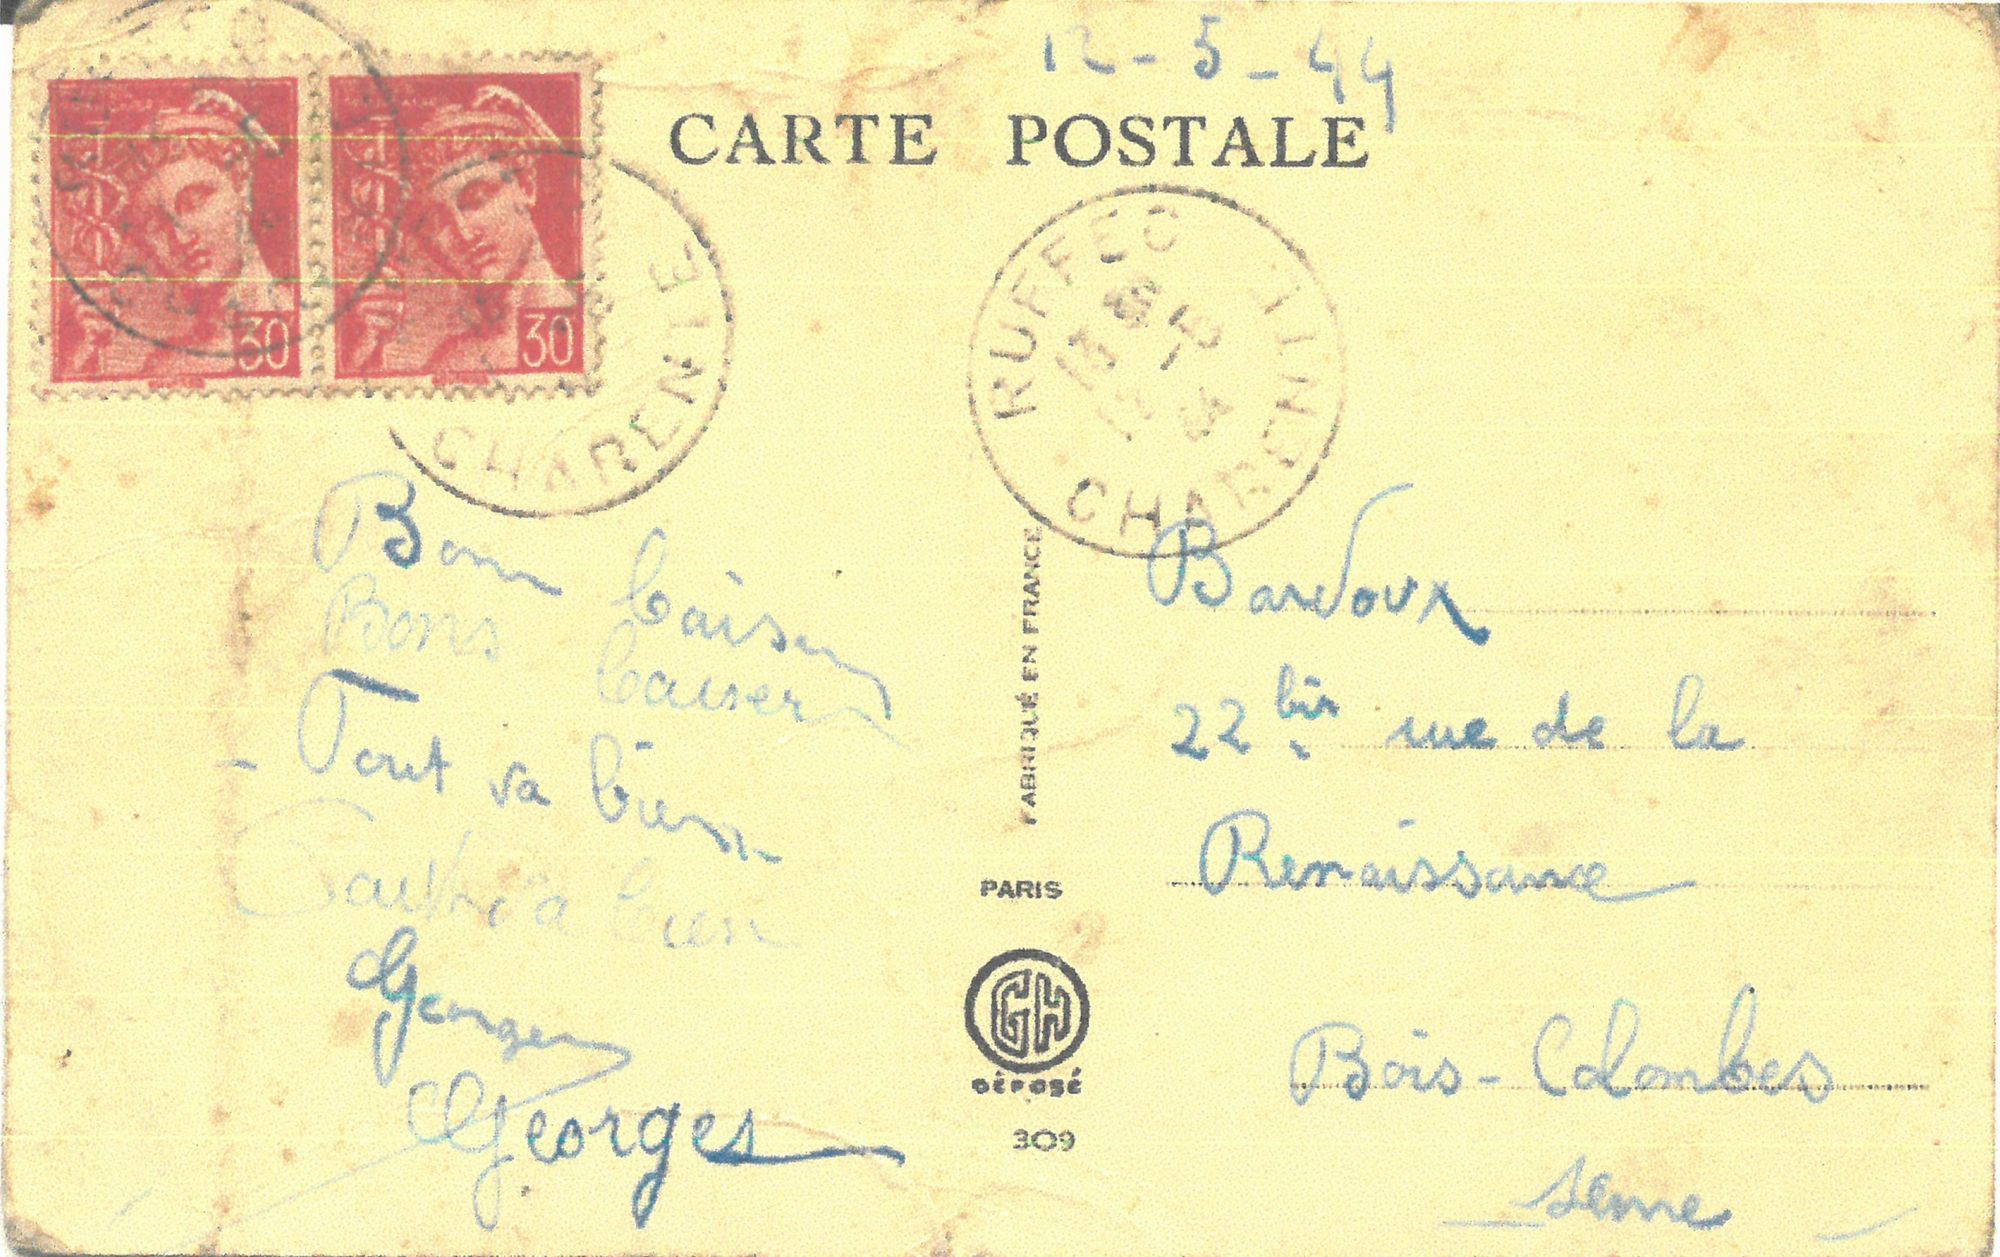 12-5-44
CARTE POSTALE
30
30
CHARENTE
RUFFEC
CHARENTE
Bons baisers
Bons baisers
- Tout va bien -
Tout va bien
Georges
Georges
FABRIQUÉ EN FRANCE
PARIS
GH
DÉPOSÉ
309
Bardoux
22 bis rue de la
Renaissance
Bois-Colombes
Seine